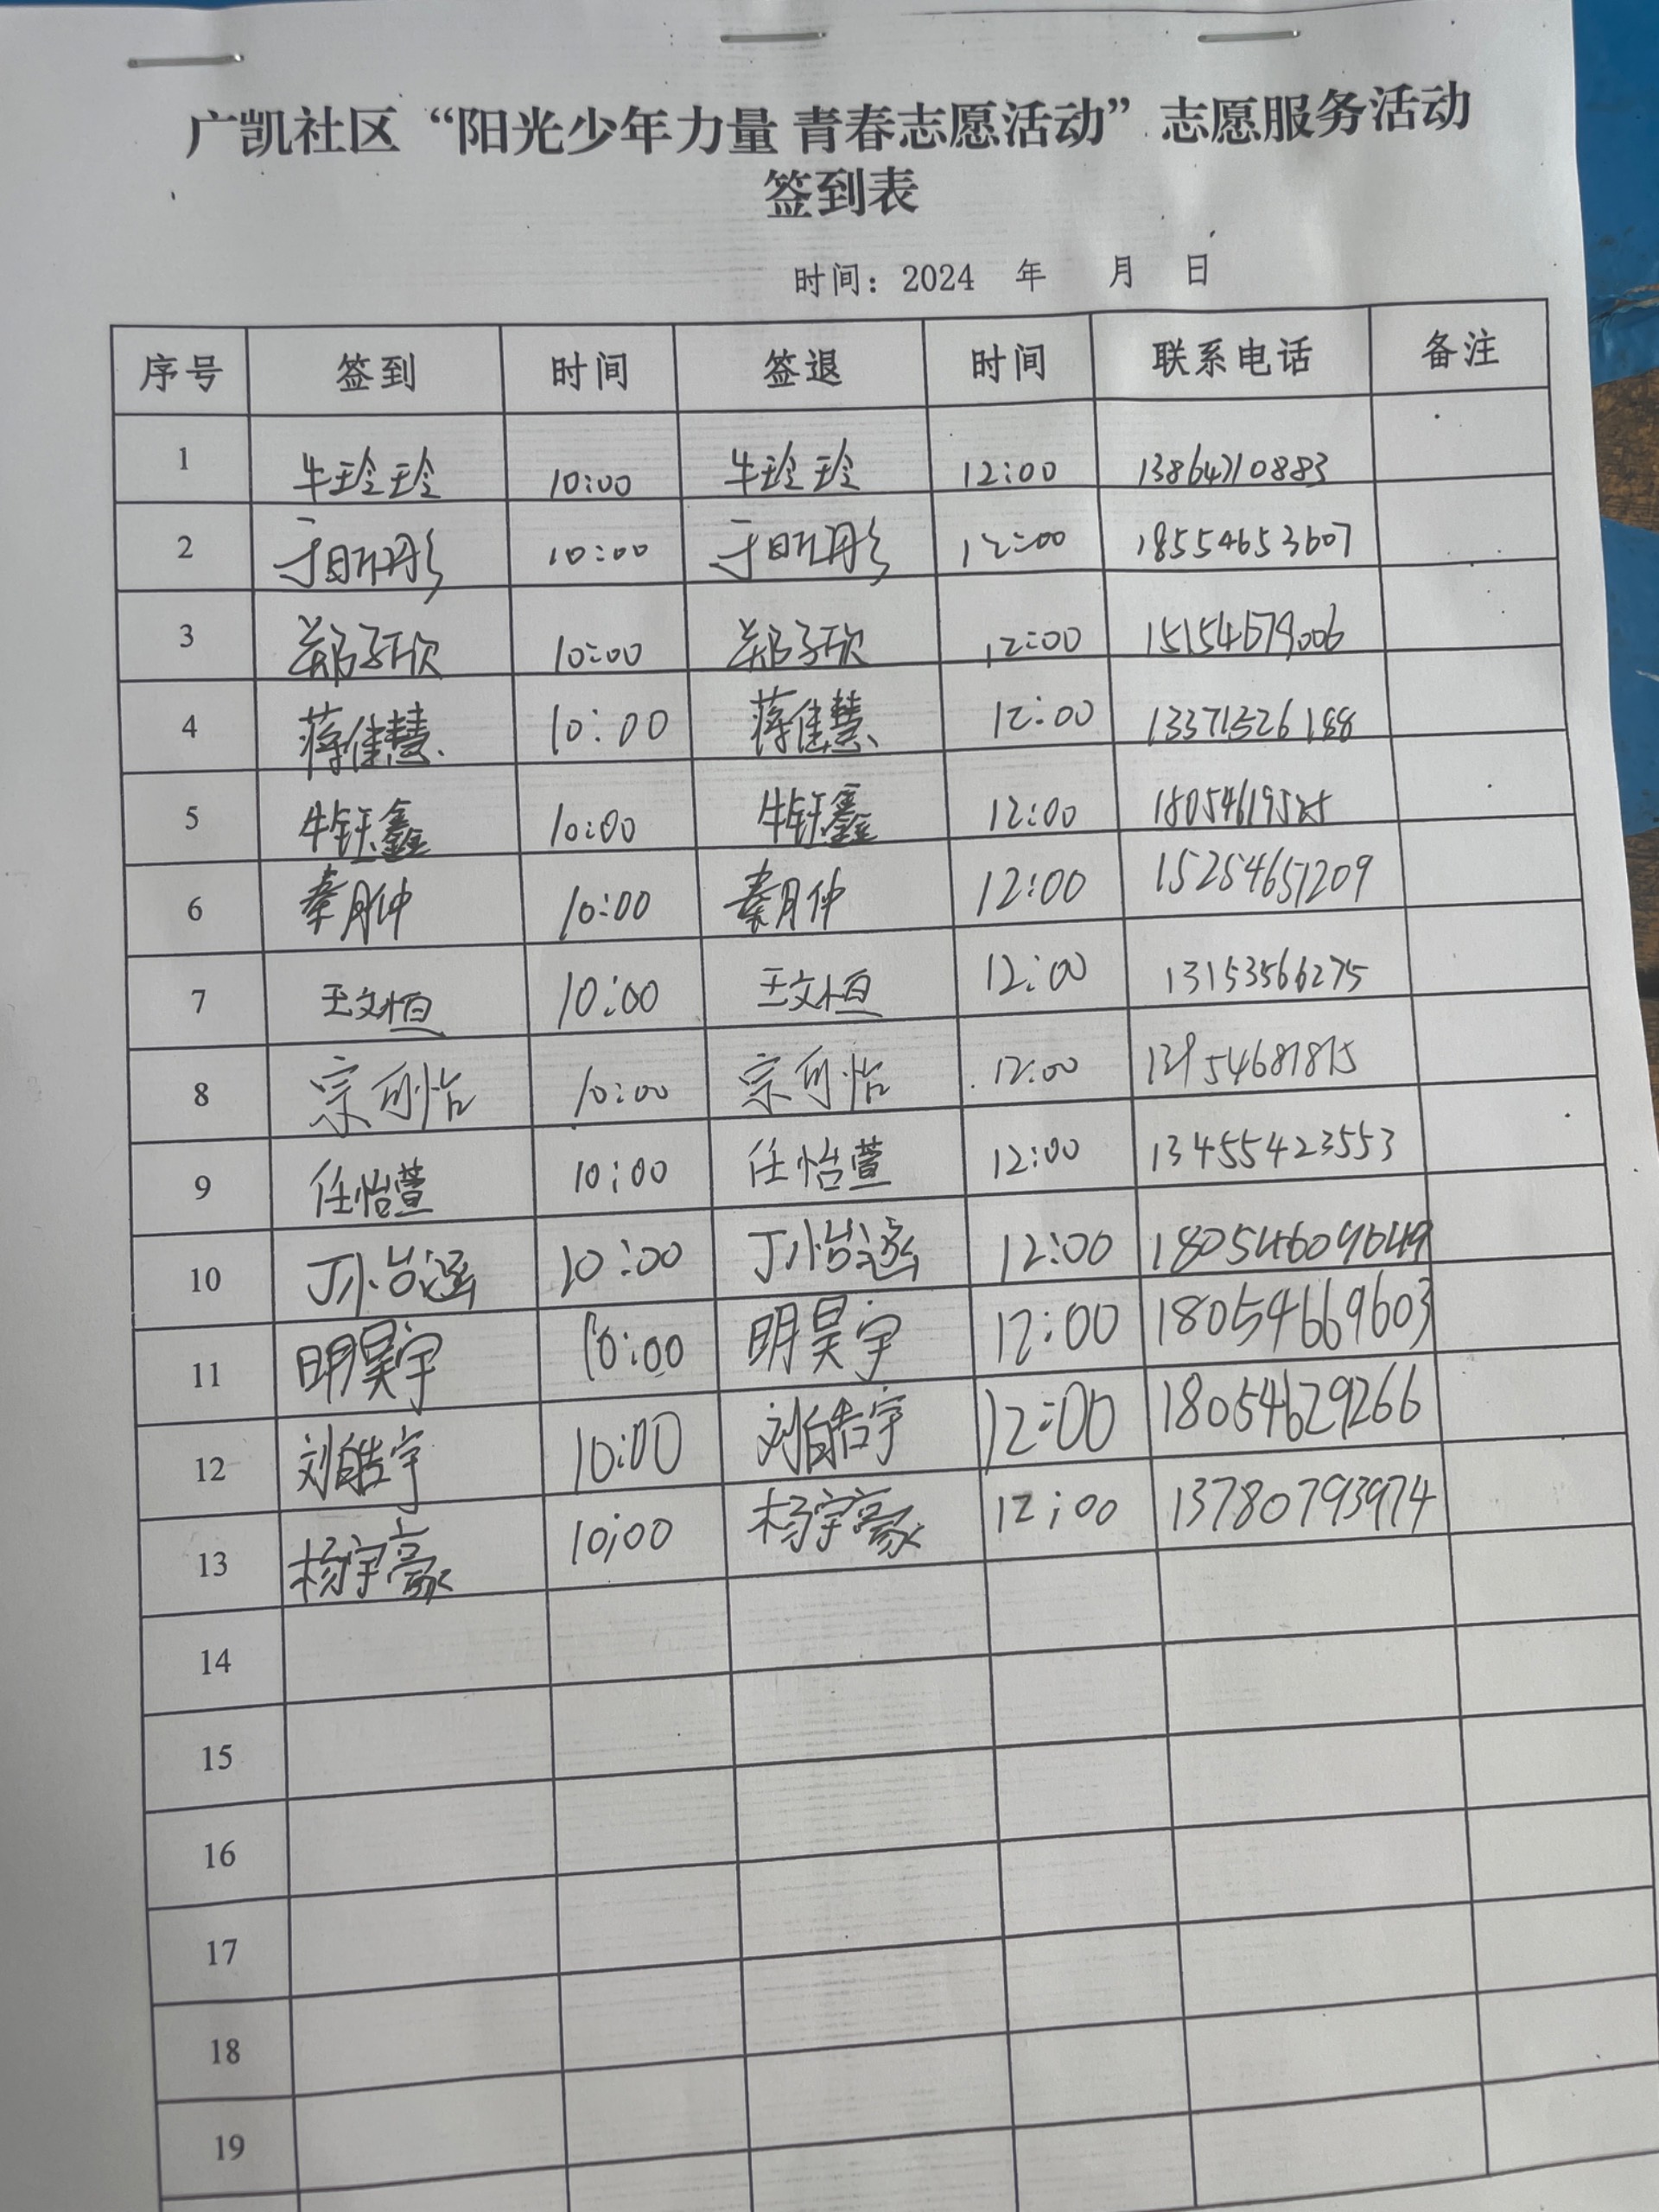 广凯社区“阳光少年力量 青春志愿活动”志愿服务活动
签到表
时间：2024 年 月 日
序号 签到 时间 签退 时间 联系电话 备注
1 牛玲玲 10:00 牛玲玲 12:00 13864710883
2 于昕彤 10:00 于昕彤 12:00 18554653607
3 郑子欣 10:00 郑子欣 12:00 15154679006
4 蒋佳慧 10:00 蒋佳慧 12:00 13371526188
5 牛钰鑫 10:00 牛钰鑫 12:00
6 秦月仲 10:00 秦月仲 12:00 15254651209
7 王文恒 10:00 王文恒 12:00 13153566275
8 宗可怡 10:00 宗可怡 12:00
9 任怡萱 10:00 任怡萱 12:00 13455423553
10 丁怡涵 10:00 丁怡涵 12:00 18054609649
11 明昊宇 10:00 明昊宇 12:00 18054669603
12 刘皓宇 10:00 刘皓宇 12:00 18054629266
13 杨宇豪 10:00 杨宇豪 12:00 13780793974
14
15
16
17
18
19